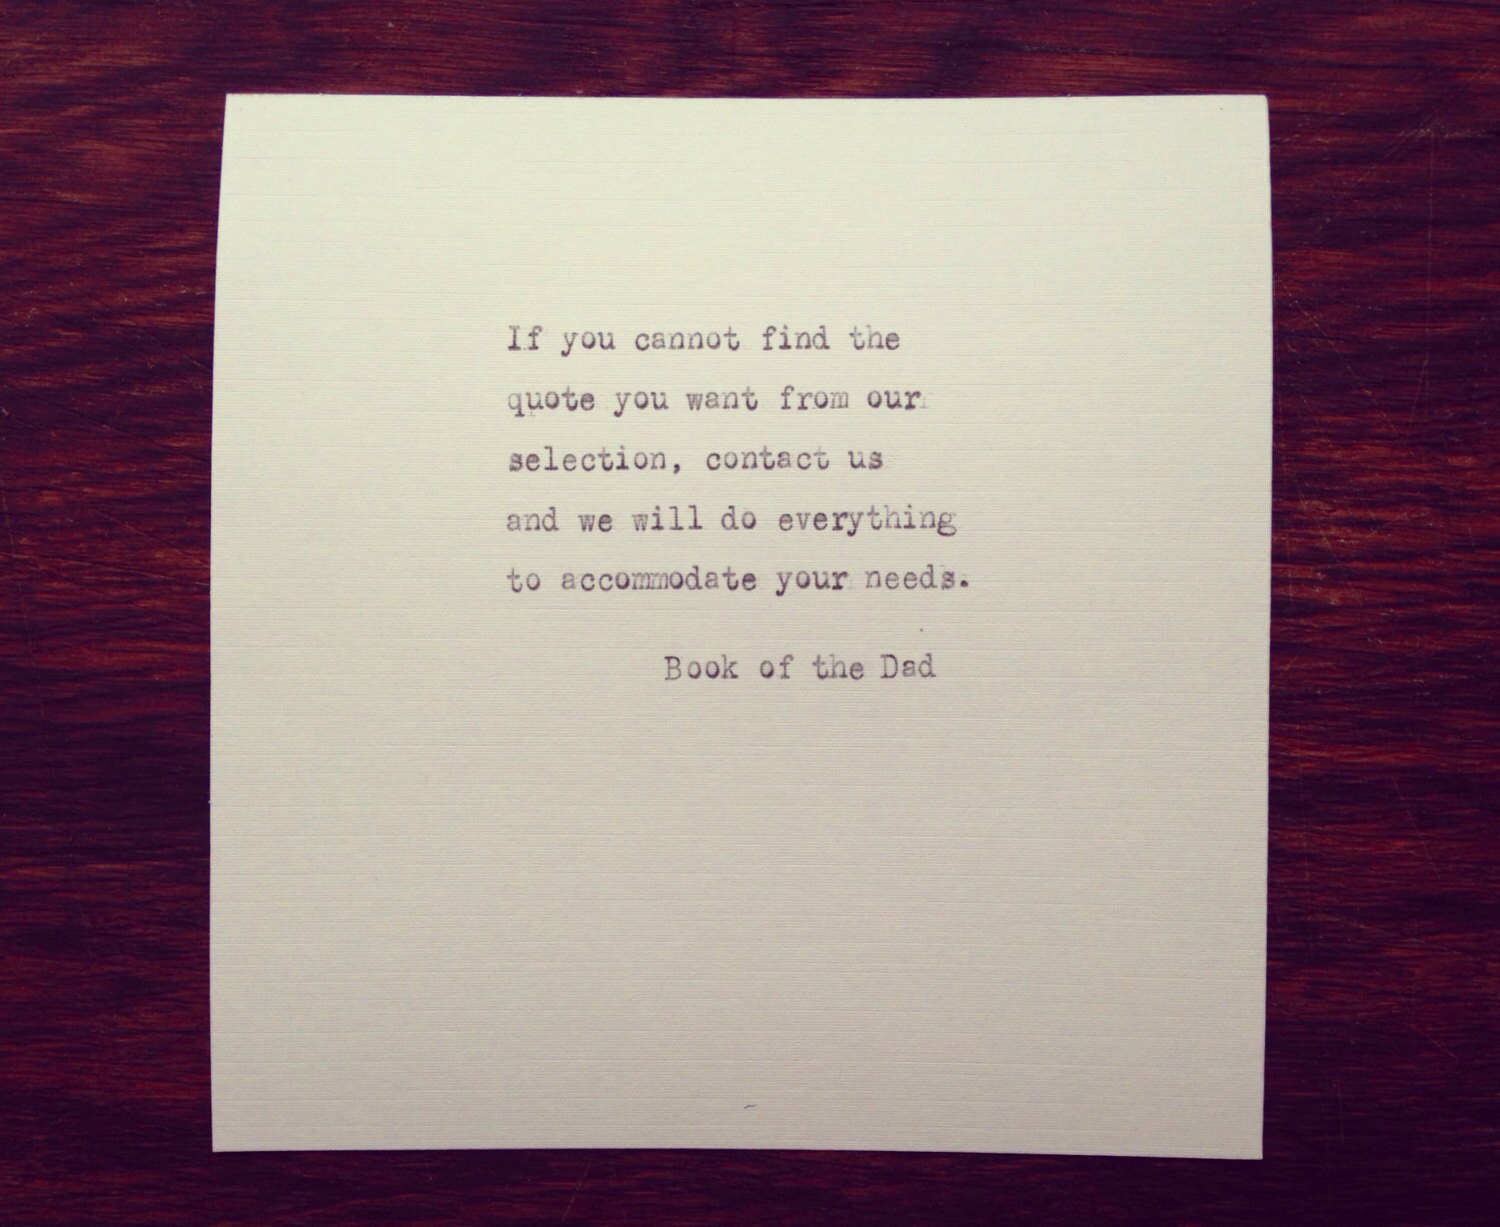 If you cannot find the
quote you want from our
selection, contact us
and we will do everything
to accommodate your needs.
Book of the Dad